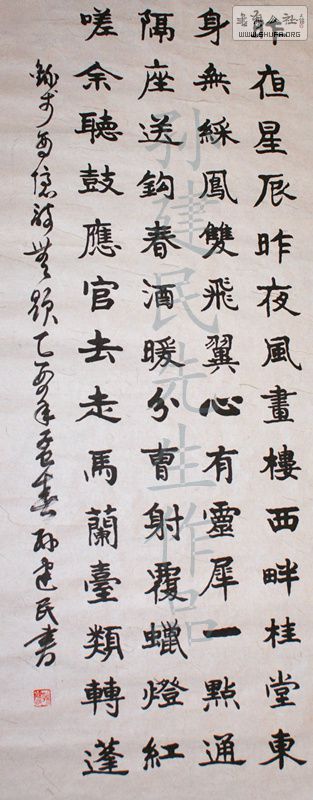 昨夜星辰昨夜風畫樓西畔桂堂東
身無綵鳳雙飛翼心有靈犀一點通
隔座送鈎春酒暖分曹射覆蠟燈紅
嗟余聽鼓應官去走馬蘭臺類轉蓬
錄李商隱詩無題乙酉年孟春孙建民書
孙建民先生作品
WWW.SHUFA.ORG